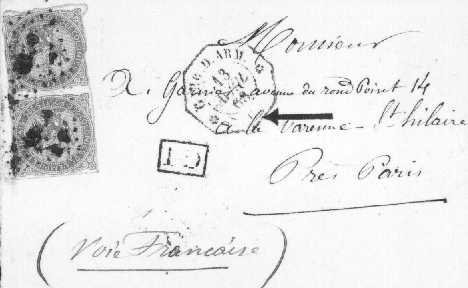 CORR. D. ARM.
13
68
Monsieur
A. Garnier avenue du rond Point 14
à la Varenne – St hilaire
Près Paris
PD
(Voie Française)